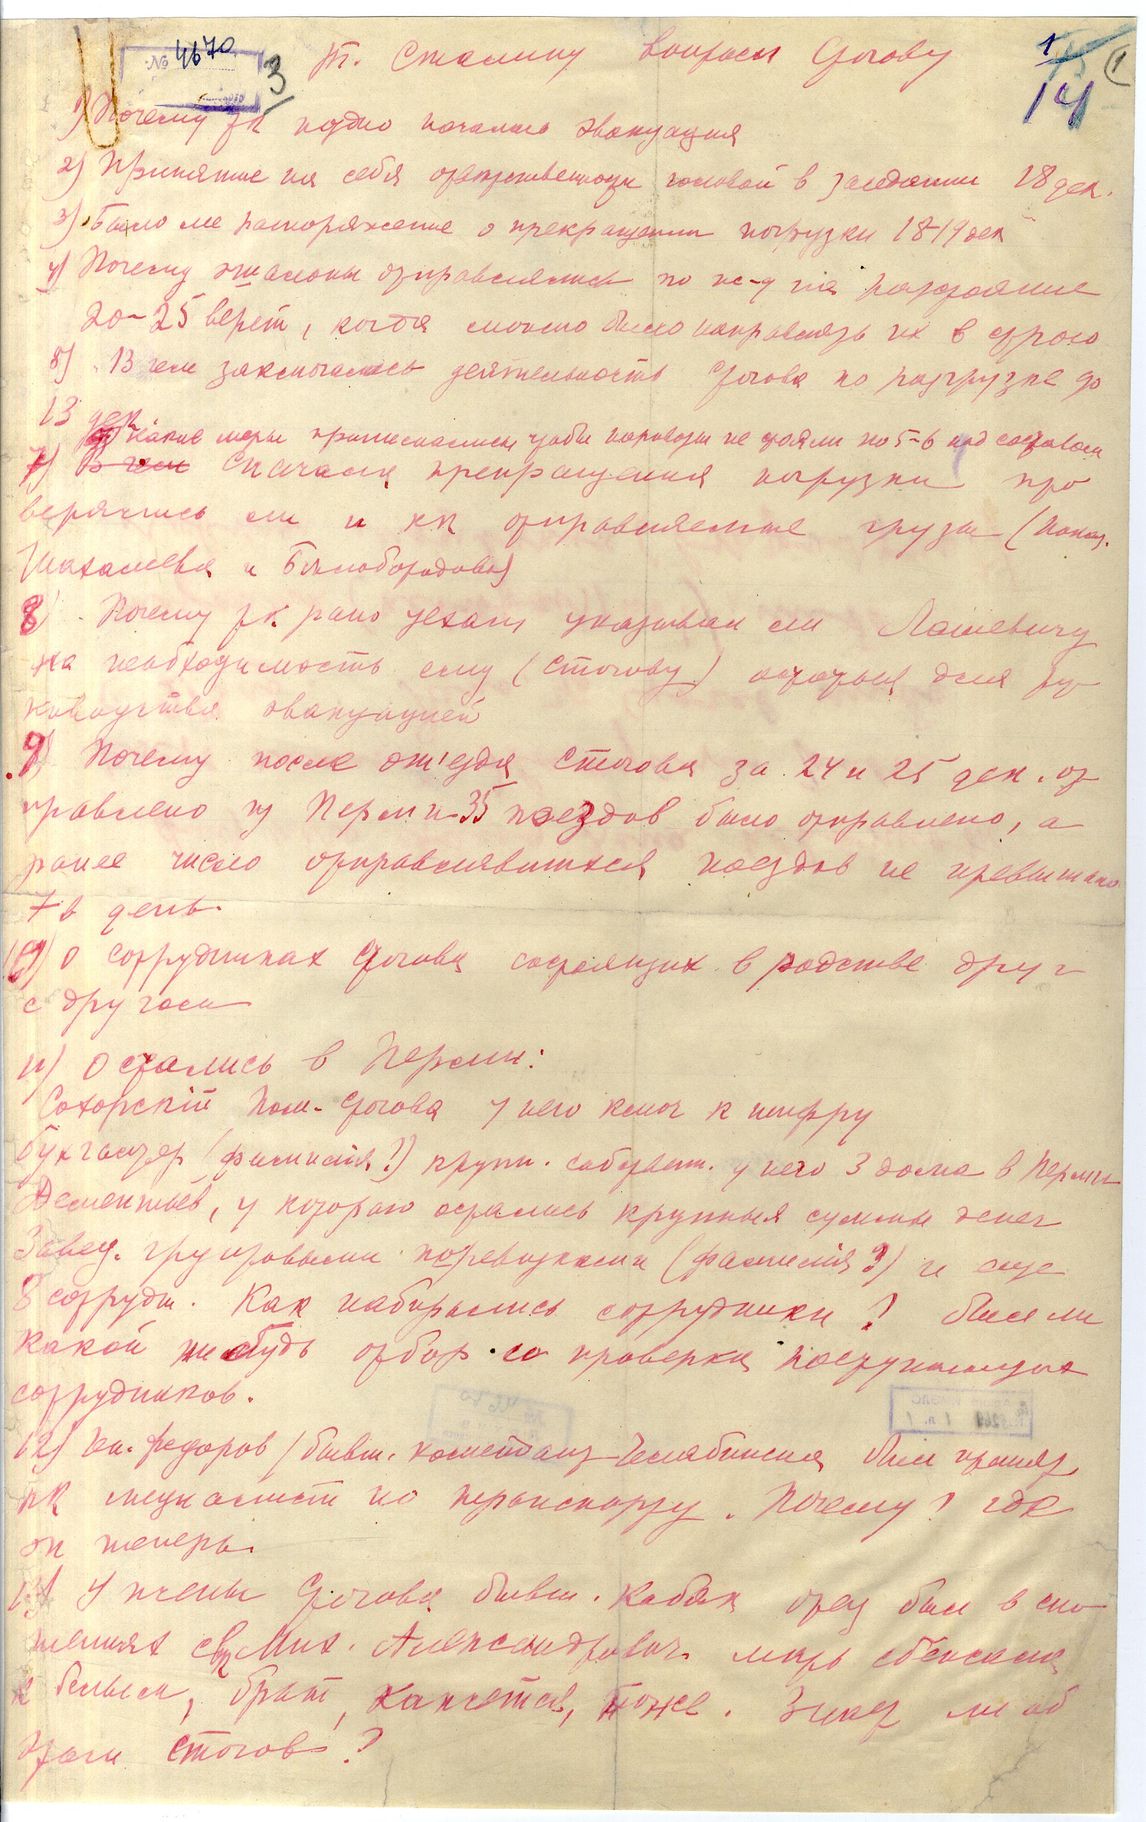 № 4670
3
1
15
14
(1
Т. Сталину вопросы Стогову
1) Почему так поздно началась эвакуация
2) Принятие на себя ответственности головой в заседании 18 дек.
3) Было ли распоряжение о прекращении погрузки 18-19 дек
4) Почему эшалоны отправлялись по ж-д на расстояние
20-25 верст, когда можно было направлять их в строю
5) В чем заключалась деятельность Стогова по разгрузке до
13 дек
какие меры принимались чтобы паровозы не стояли по 5-6 под составом
7) В чем С начала прекращения погрузки про
верялись ли и как отправляемые грузы (показ.
и Белобородова)
8) Почему так рано уехал, указывал ли Лашевичу
на необходимость ему (Стогову) остаться для ру-
ководства эвакуацией
9) Почему после от'езда Стогова за 24 и 25 дек. от
правлено из Перми 35 поездов было отправлено, а
ранее число отправлявшихся поездов не превышало
7 в день.
10) О сотрудниках Стогова состоящих в родстве друг
с другом
11) Остались в Перми:
Сохорскій Пом. Стогова у него ключ к шифру
бухгалтер (фамилія?) крупн. собствен. у него 3 дома в Перми
Дементьев, у которого остались крупныя суммы денег
Завед. грузовыми перевозками (фамилія?) и еще
8 сотрудн. Как набирались сотрудники? был ли
какой нибудь отбор со проверка поступающих
сотрудников.
12) Ин. Федоров (бывш. комендант Челябинска был принят
как специалист по транспорту. Почему? где
он теперь.
13) У жены Стогова бывш. отец был в сно-
шениях с Мих. Александрович. мать сбежала
к белым, брат, тоже. Знает ли об
этом Стогов?